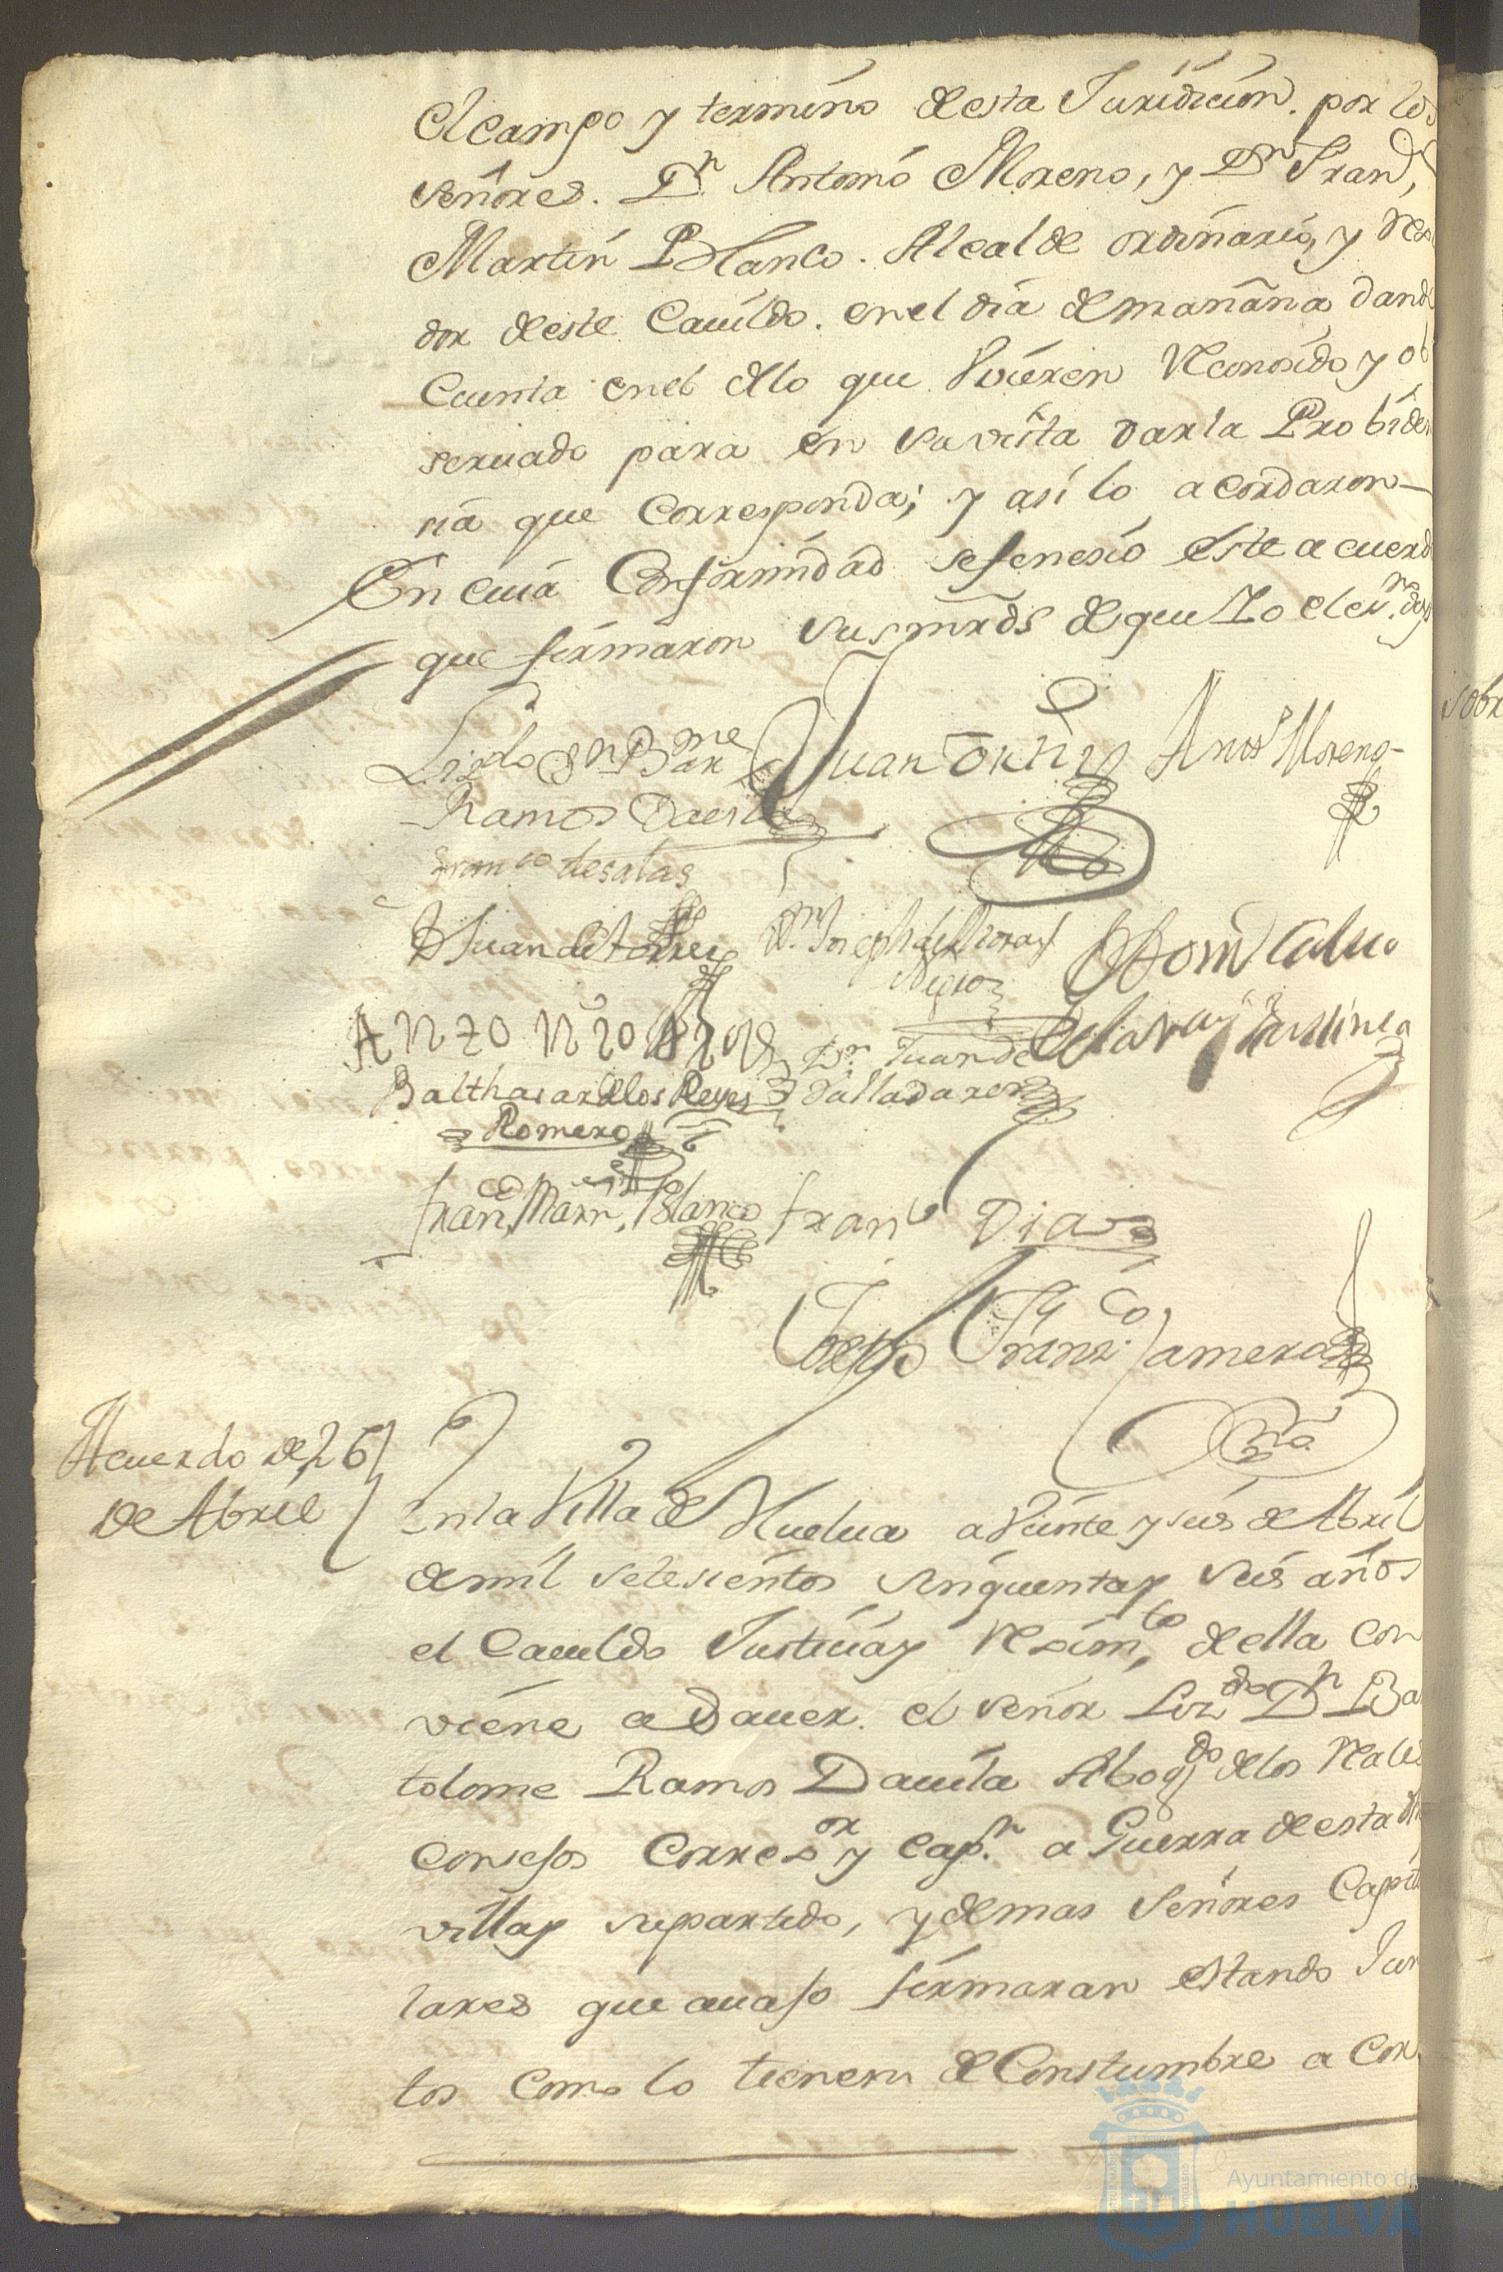 el campo y termino de esta Juridicion. por los
señores. Dn Antonio Moreno, y Dn Franco
Martin Blanco. Alcalde ordinario, y Rexi
dor de este Cavildo. en el dia de mañana dando
Cuenta en el de lo que Uvieren Reconosido y ob
servado para en su vista dar la Probiden
sia que Corresponda; y asi lo acordaron
En cuia Conformidad se fenesio este acuerdo
que firmaron sus mrds de que Yo el esno doy
Lizdo Dn Barme
Ramos Davila
Juan Ortiz
Antto Moreno
Franco de salas
D Juan de torres
Dn Joseph de
Dom Calvo
de la
Anzonio
Dn Juan de
Valladares
Balthasar de los Reyes
Romero
Franco Marn Blanco
Franco Dias
Joseph Franzco Camera
Acuerdo de 26
de Abril
En la Villa de Huelva a Veinte y seis de Abril
de mil setesientos sinquenta y seis años
el Cavildo Justicia y Reximto de ella con
viene a Saver. el señor Lizdo Dn Bar
tolome Ramos Davila Abogdo de los Reales
Consejos Correxor y Capn a Guerra de esta dha
villa y su partido, y demas Señores Capitu
lares que avajo firmaran estando Jun
tos Como lo tienen de Constumbre a Con
sobr
Ayuntamiento de
HUELVA